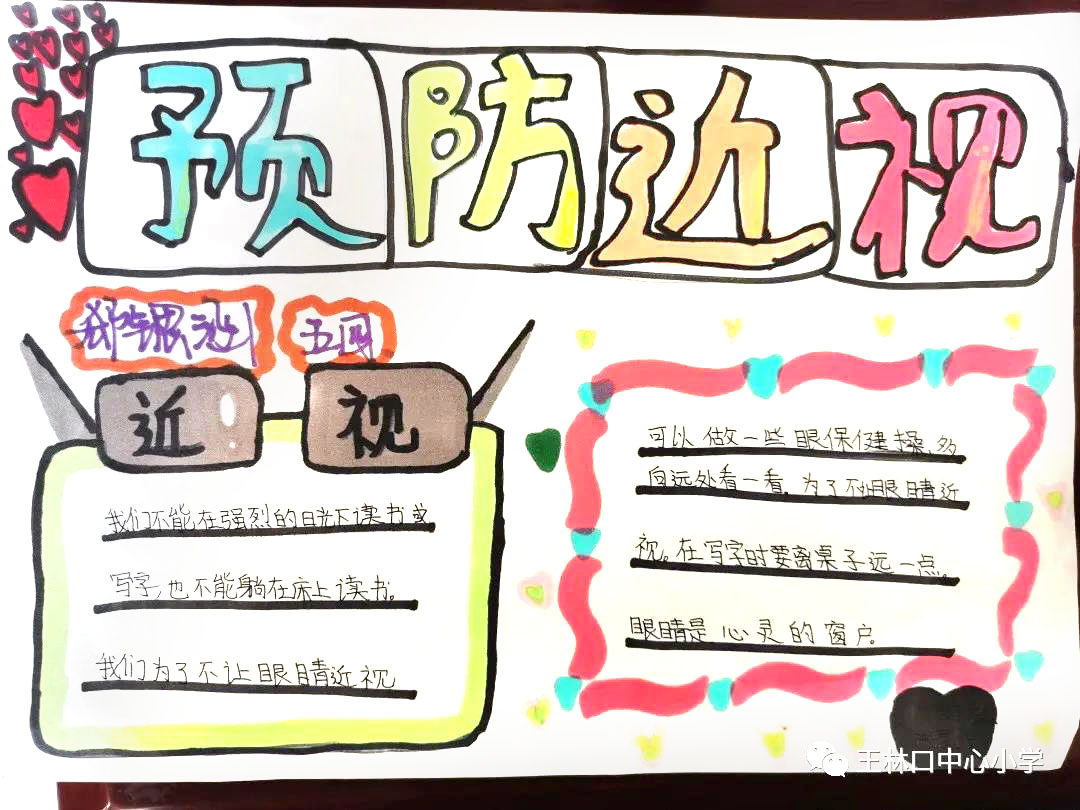 预防近视
五四
近视
我们不能在强烈的日光下读书或
写字,也不能躺在床上读书。
我们为了不让眼睛近视
可以做一些眼保健操,多
向远处看一看。为了不让眼睛近
视。在写字时要离桌子远一点。
眼睛是心灵的窗户。
王林口中心小学